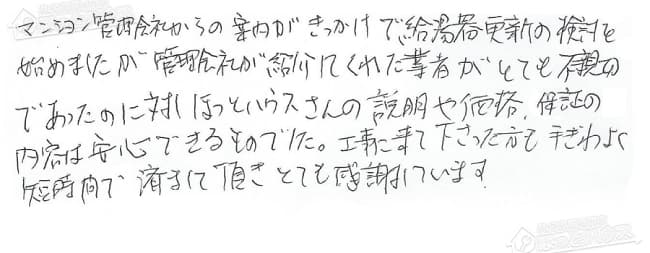 マンション管理会社からの案内がきっかけで給湯器更新の検討を
始めましたが管理会社が紹介してくれた業者がとても不親切
であったのに対しほっとハウスさんの説明や価格、保証の
内容は安心できるものでした。工事に来て下さった方も手ぎわよく
短時間で済ませて頂きとても感謝しています